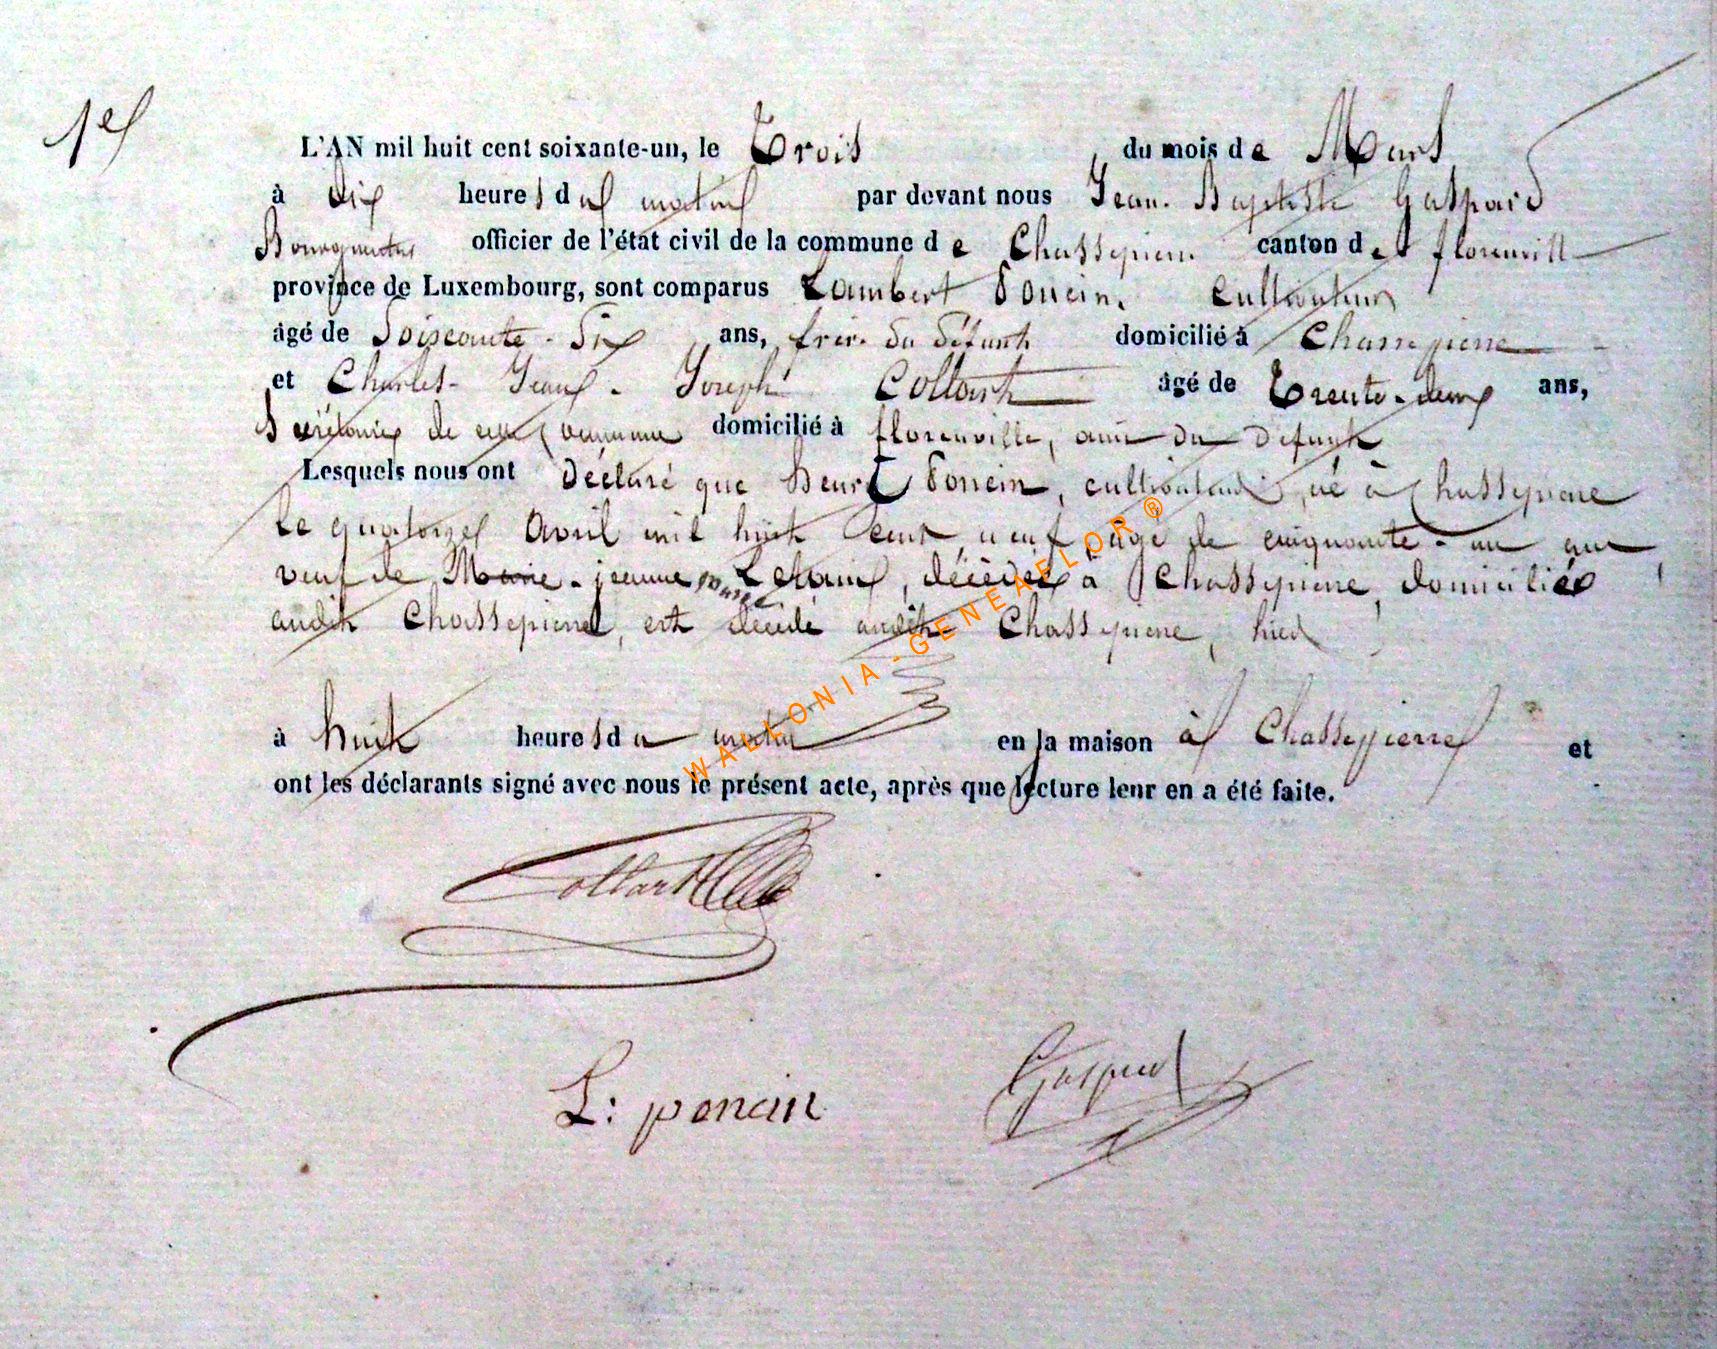 1er
L'AN mil huit cent soixante-un, le Trois du mois de Mars
à dix heures du matin par devant nous Jean-Baptiste Gaspard
Bourgmestre officier de l'état civil de la commune de Chassepierre canton de florenville
province de Luxembourg, sont comparus Lambert Poncin, cultivateur
âgé de Soixante-Six ans, frère du défunt domicilié à Chassepierre
et Charles-Jean-Joseph Collart âgé de Trente-deux ans,
Secrétaire de commune domicilié à florenville, ami du défunt
Lesquels nous ont déclaré que henri Poncin, cultivateur, né à Chassepierre
le quatorze avril mil huit cent neuf, âgé de cinquante-un ans
veuf de Marie-jeanne, décédée à Chassepierre, domicilié
audit Chassepierre, est décédé audit Chassepierre, hier
à huit heures du matin en la maison à Chassepierre et
ont les déclarants signé avec nous le présent acte, après que lecture leur en a été faite.
Collart
L: poncin
Gaspard
WALLONIA-GENEAELOR®